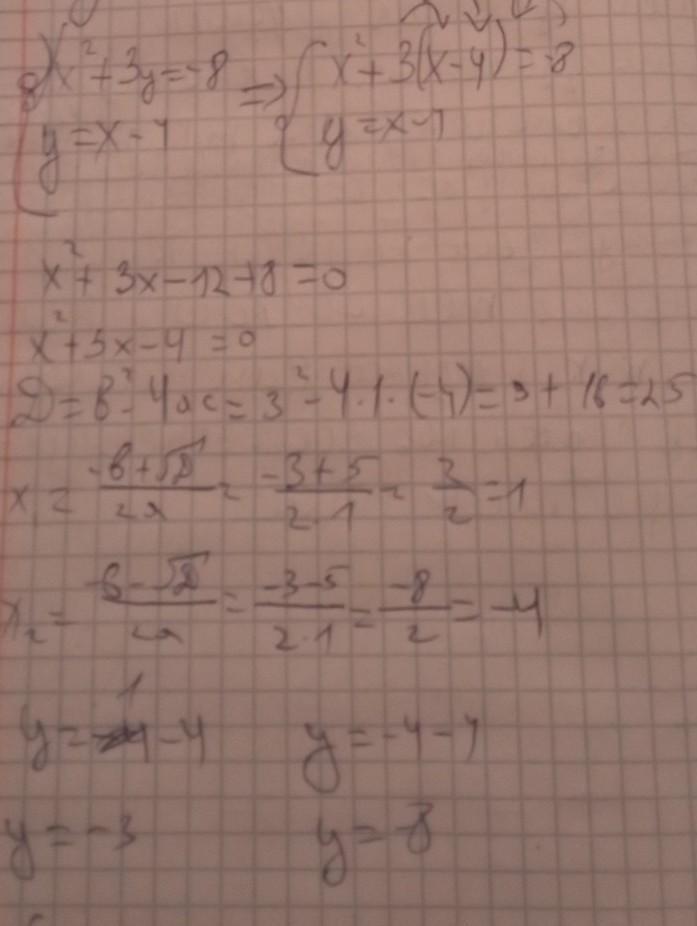 8) { x² + 3y = -8 => { x² + 3(x-4) = -8
y = x - 4 y = x - 4
x² + 3x - 12 + 8 = 0
x² + 3x - 4 = 0
D = b² - 4ac = 3² - 4·1·(-4) = 9 + 16 = 25
x₁ = (-b + √D)/2a = (-3 + 5)/(2·1) = 2/2 = 1
x₂ = (-b - √D)/2a = (-3 - 5)/(2·1) = -8/2 = -4
y = 1 - 4 y = -4 - 4
y = -3 y = -8